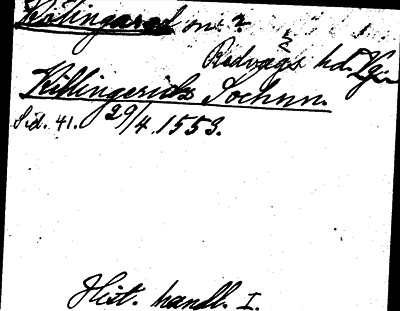 Killingared sn. ?
Redvägs hd. Vg.
Killingeridz Sochnn.
Sid. 41. 29/4 1553.
Hist. handl. I.